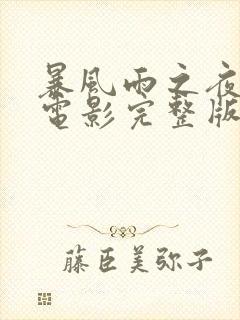 暴風雨之夜
電影完整版
藤臣美弥子